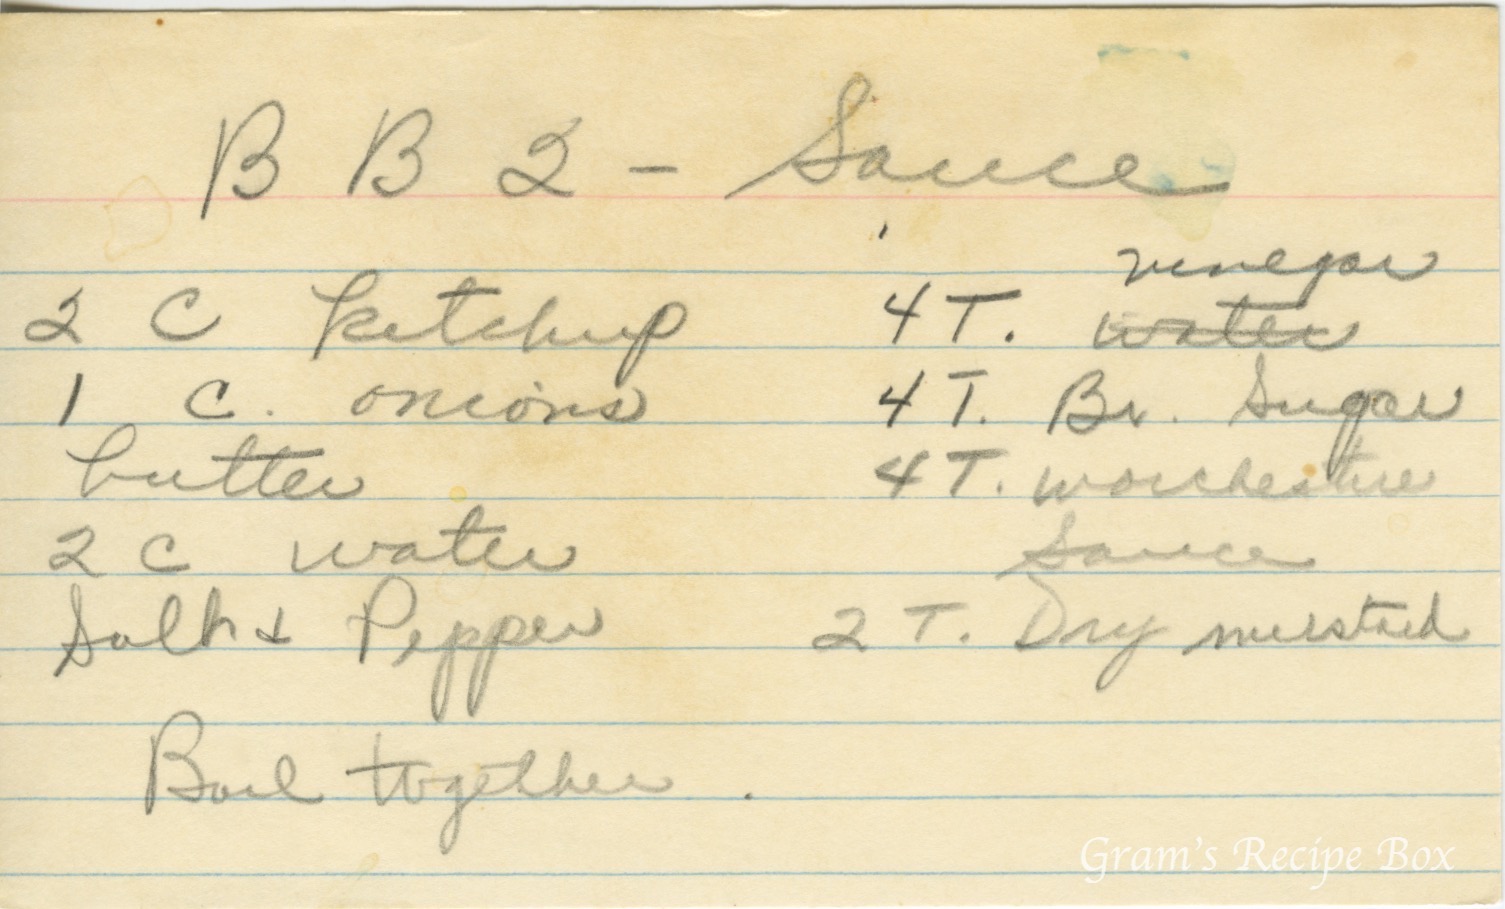 B B Q - Sauce
2 C ketchup
1 C. onions
butter
2 C water
Salt & Pepper
4 T. vinegar
water
4 T. Br. Sugar
4 T. worchestire
Sauce
2 T. Dry mustard
Boil together.
Gram's Recipe Box